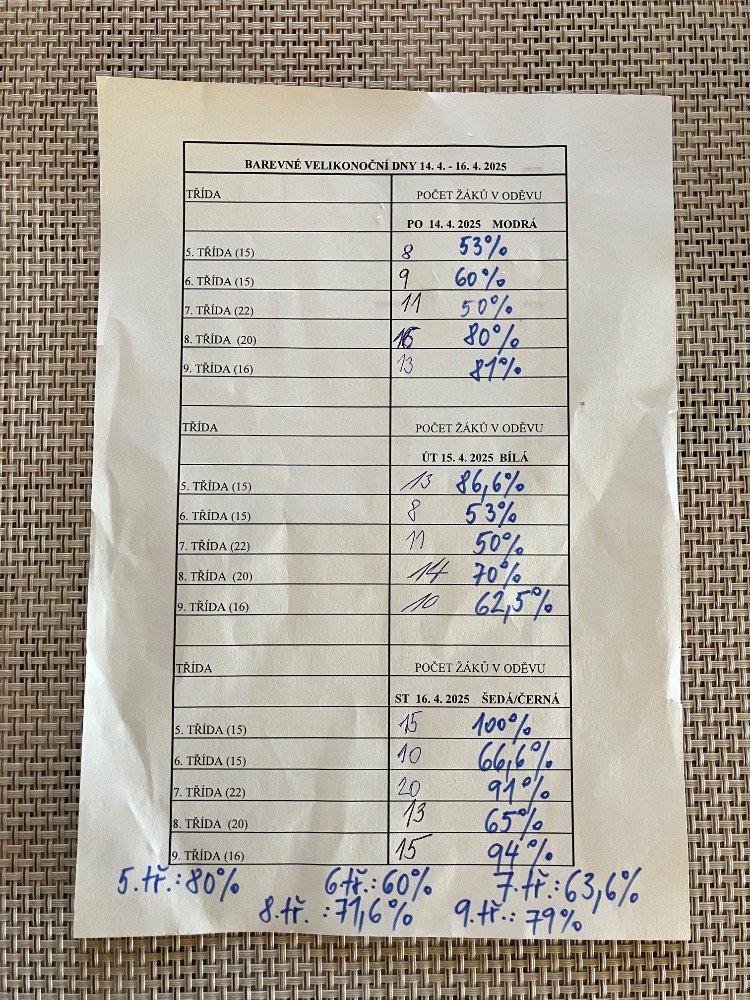 BAREVNÉ VELIKONOČNÍ DNY 14. 4. - 16. 4. 2025
TŘÍDA POČET ŽÁKŮ V ODĚVU
PO 14. 4. 2025 MODRÁ
5. TŘÍDA (15) 8 53%
6. TŘÍDA (15) 9 60%
7. TŘÍDA (22) 11 50%
8. TŘÍDA (20) 16 80%
9. TŘÍDA (16) 13 81%
TŘÍDA POČET ŽÁKŮ V ODĚVU
ÚT 15. 4. 2025 BÍLÁ
5. TŘÍDA (15) 13 86,6%
6. TŘÍDA (15) 8 53%
7. TŘÍDA (22) 11 50%
8. TŘÍDA (20) 14 70%
9. TŘÍDA (16) 10 62,5%
TŘÍDA POČET ŽÁKŮ V ODĚVU
ST 16. 4. 2025 ŠEDÁ/ČERNÁ
5. TŘÍDA (15) 15 100%
6. TŘÍDA (15) 10 66,6%
7. TŘÍDA (22) 20 91%
8. TŘÍDA (20) 13 65%
9. TŘÍDA (16) 15 94%
5.tř.:80% 6tř.:60% 7.tř.:63,6%
8.tř. :71,6% 9.tř.: 79%